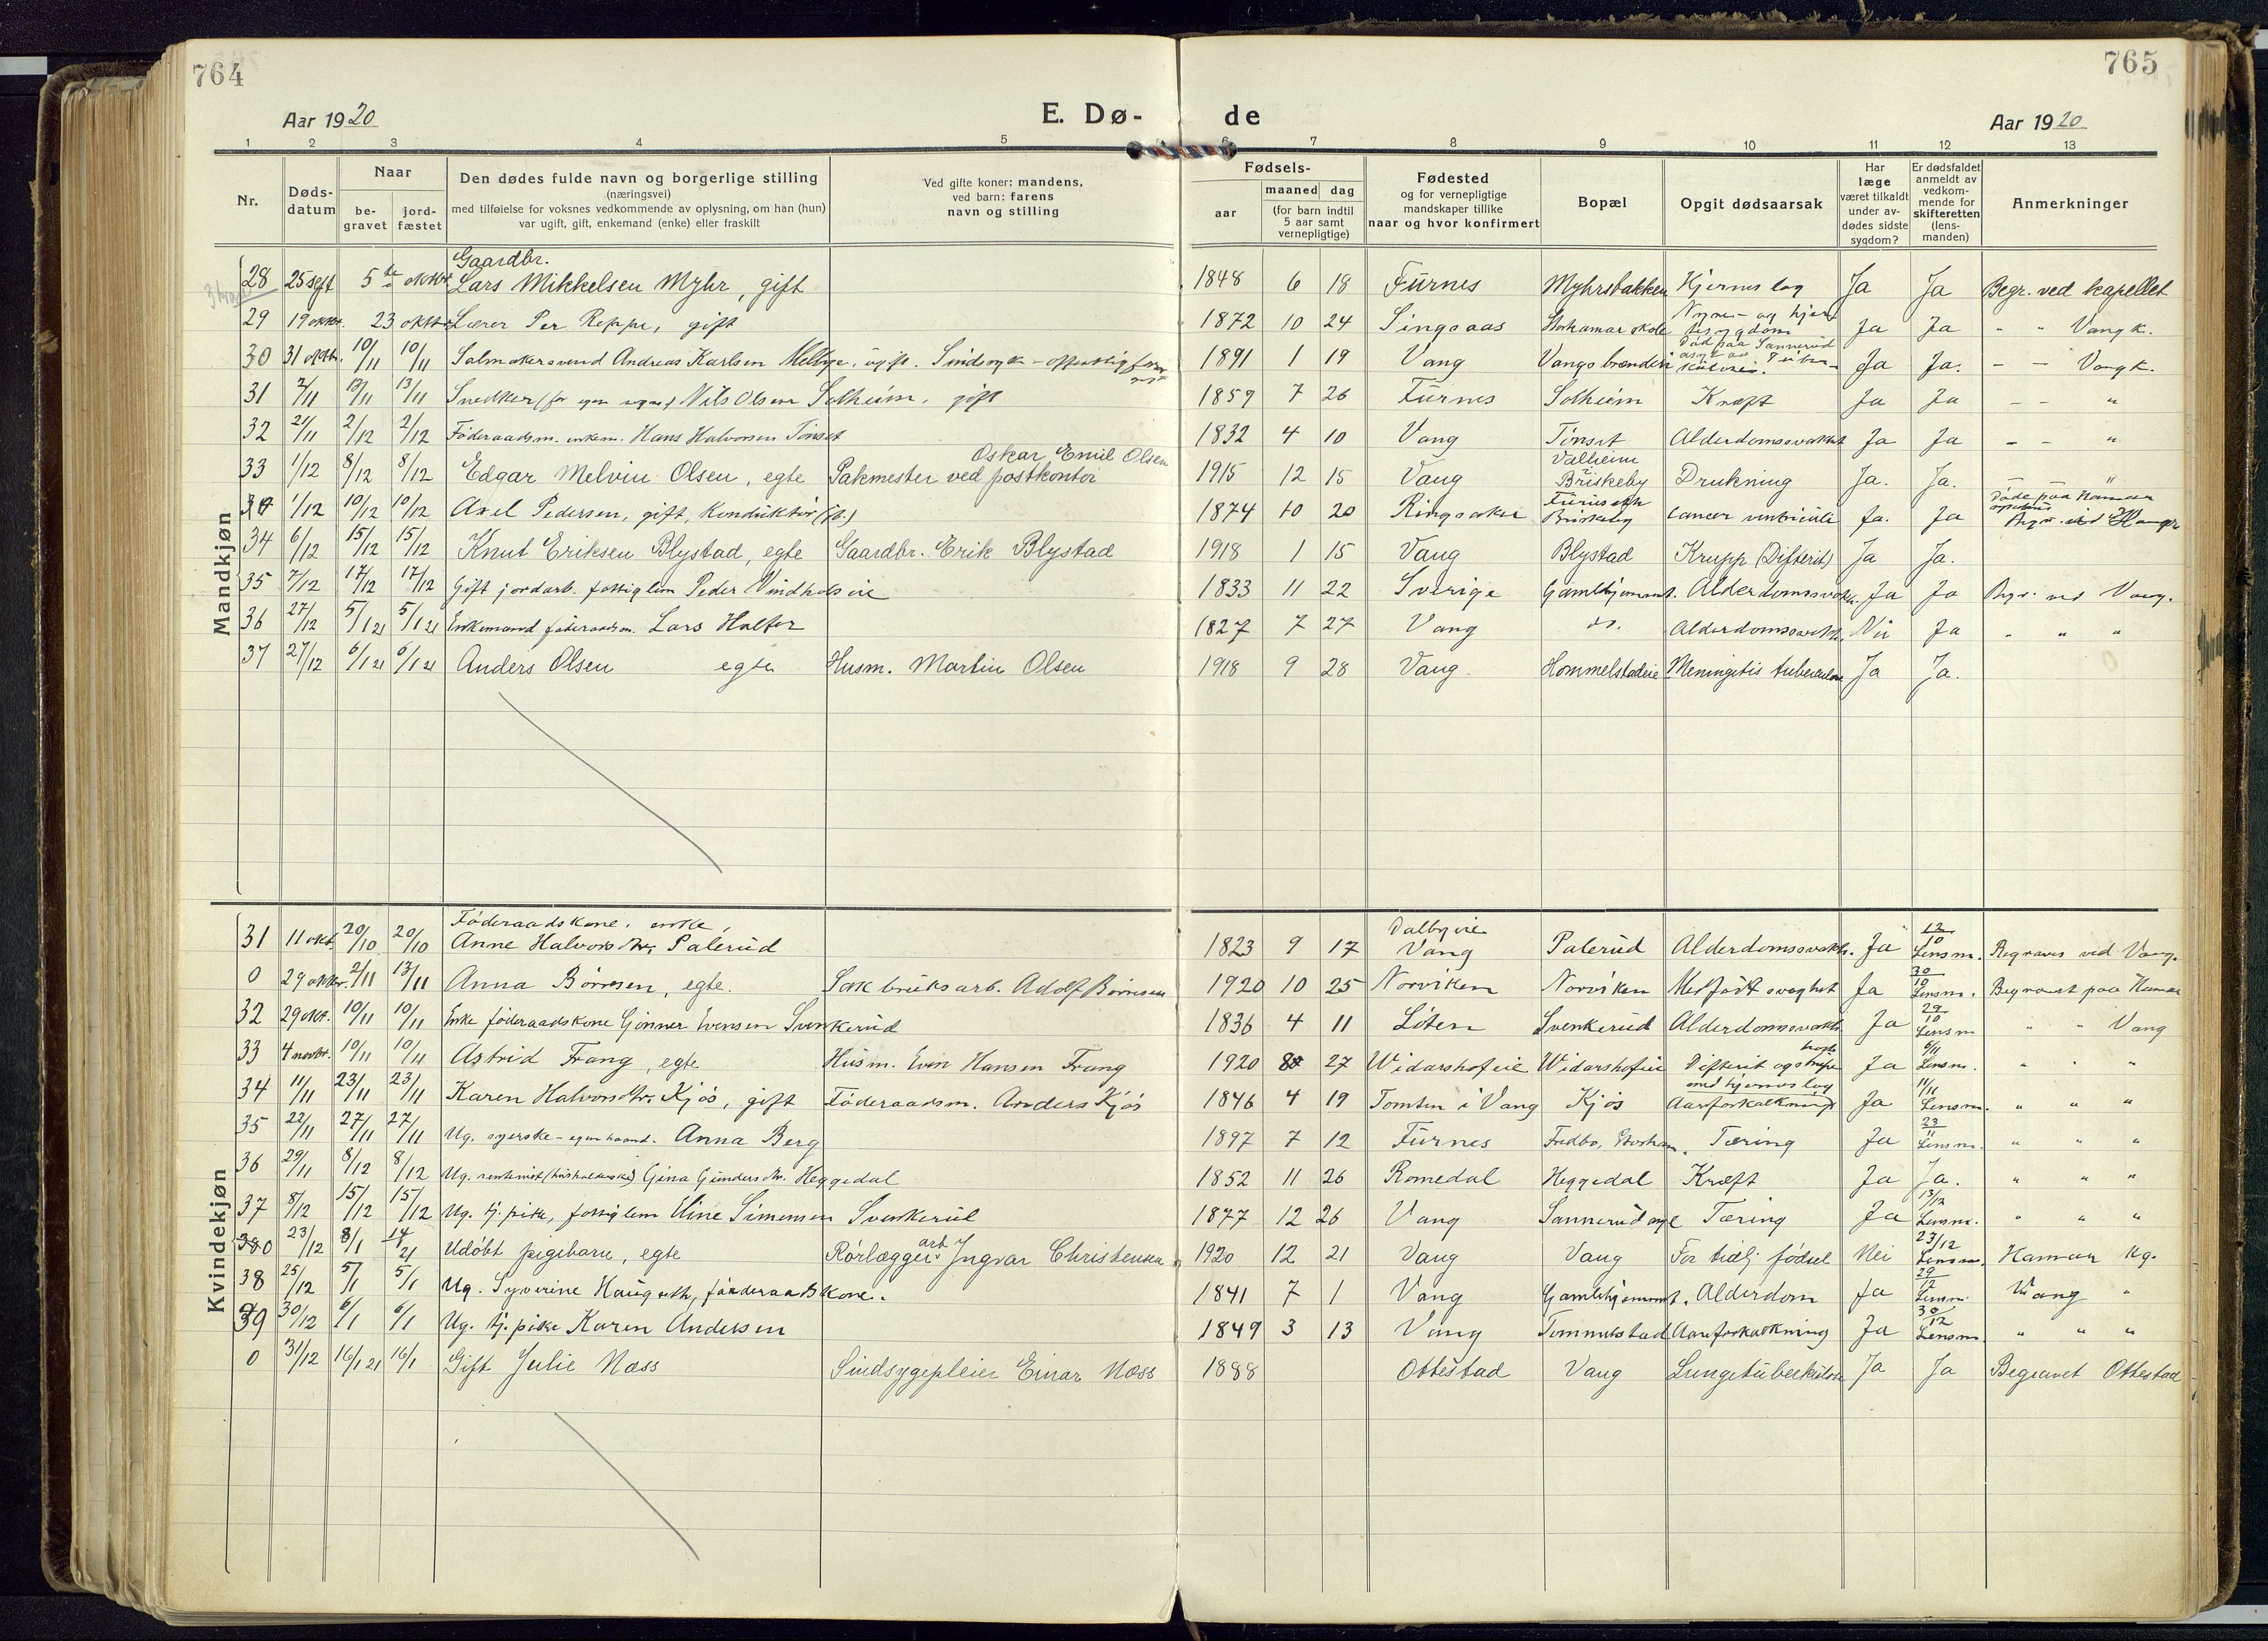 764
765
Aar 1920
E. Dø-
de
Aar 1920
1 2 3 4 5 6 7 8 9 10 11 12 13
Nr.
Døds-
datum
Naar
be-
gravet
jord-
fæstet
Den dødes fulde navn og borgerlige stilling
(næringsvei)
med tilføielse for voksnes vedkommende av oplysning, om han (hun)
var ugift, gift, enkemand (enke) eller fraskilt
Ved gifte koner: mandens,
ved barn: farens
navn og stilling
Fødsels-
aar
maaned dag
(for barn indtil
5 aar samt
vernepligtige)
Fødested
og for vernepligtige
mandskaper tillike
naar og hvor konfirmert
Bopæl
Opgit dødsaarsak
Har
læge
været tilkaldt
under av-
dødes sidste
sygdom?
Er dødsfaldet
anmeldt av
vedkom-
mende for
skifteretten
(lens-
manden)
Anmerkninger
Mandkjøn
Gaardbr.
28 25 sept 5te oktbr Lars Mikkelsen Myhr, gift 1848 6 18 Furnes Myhrsbakken Hjerneslag Ja Ja Begr. ved kapellet
29 19 oktbr. 23 oktbr Lærer Per Reppe, gift 1872 10 24 Singsaas Storhamar skole Nyre- og hjertesygdom Ja Ja " " Vang k.
30 31 oktbr. 10/11 10/11 Salmakersvend Andreas Karlsen, ugift. Sindssyk - offentlig 1891 1 19 Vang Vangs brænderi Død paa Sannerud asyl av Tuberkulose. Ja Ja. - - Vang k.
31 2/11 13/11 13/11 Snedker (for egen regn.) Nils Olsen Solheim, gift 1859 7 26 Furnes Solheim Kræft Ja Ja - - "
32 21/11 2/12 2/12 Føderaadsm. enkem. Hans Halvorsen Tønset 1832 4 10 Vang Tønset Alderdomssvakhet Ja Ja - - "
33 1/12 8/12 8/12 Edgar Melvin Olsen, egte Oskar Emil Olsen Pakmester ved postkontor 1915 12 15 Vang Valheim Briskeby Drukning Ja. Ja. - "
0 1/12 10/12 10/12 Axel Pedersen, gift, Konduktør 1874 10 20 Ringsaker Briskeby Cancer ventriculi Ja. Ja Døde paa Hamar Begr. ved Hamar
34 6/12 15/12 15/12 Knut Eriksen Blystad, egte Gaardbr. Erik Blystad 1918 1 15 Vang Blystad Krupp (Difterit) Ja Ja.
35 7/12 17/12 17/12 Gift jordarb. fattiglem Peder Vindholseie 1833 11 22 Sverige Gamlehjemmet. Alderdomssvakh. Ja Ja Begr. ved Vang.
36 27/12 5/1 21 5/1 21 Enkemand føderaadsm. Lars Halter 1827 7 27 Vang do. Alderdomssvakh. Nei Ja " " "
37 27/12 6/1 21 6/1 21 Anders Olsen egte Husm. Martin Olsen 1918 9 28 Vang Hommelstadeie Meningitis tuberculosa Ja Ja.
Kvindekjøn
Føderaadskone, enke,
31 11 okt. 20/10 20/10 Anne Halvorsdtr. Palerud 1823 9 17 Dalbyeie Vang Palerud Alderdomssvakh. Ja 12/10 Lensm. Begraves ved Vang.
0 29 oktbr. 2/11 13/11 Anna Børresen, egte. Sakbruksarb. Adolf Børresen 1920 10 25 Norviken Norviken Medfødt svaghet Ja 30/10 Lensm. Begravet paa Hamar
32 29 okt. 10/11 10/11 Enke føderaadskone Gønner Evensen Svenkerud 1836 4 11 Løten Svenkerud Alderdomssvakh. Ja 29/10 Lensm " " Vang
33 4 novbr. 10/11 10/11 Astrid Frang, egte Husm. Even Hansen Frang 1920 8 27 Widarshofeie Widarshofeie Difterit og strupe hoste Ja 6/11 Lensm. " " "
34 11/11 23/11 23/11 Karen Halvorsdtr. Kjøs, gift Føderaadsm. Anders Kjøs 1846 4 19 Tomten i Vang Kjøs Aareforkalkning med hjerneslag Ja 11/11 Lensm. " " "
35 22/11 27/11 27/11 Ug. syerske - egen haand. Anna Berg 1897 7 12 Furnes Fredbo, Storham. Tæring Ja 23/11 Lensm. " " "
36 29/11 8/12 8/12 Ug. rentenist (husholderske) Gina Gundersdtr. Heggedal 1852 11 26 Romedal Heggedal Kræft Ja Ja. " " "
37 8/12 15/12 15/12 Ug. tj. pike, fattiglem Eline Simensen Svenkerud 1877 12 26 Vang Sannerud asyl Tæring Ja 13/12 Lensm. " " "
0 23/12 8/1 14/21 Udøbt pigebarn, egte Rørlæggerarb. Ingvar Christensen 1920 12 21 Vang Vang For tidlig fødsel Nei 23/12 Lensm. Hamar kg.
38 25/12 5/1 5/1 Ug. Syverine Haugseth, føderaadskone. 1841 7 1 Vang Gamlehjemmet. Alderdom Ja 29/12 Lensm. Vang "
39 30/12 6/1 6/1 Ug. tj. pike Karen Andersen 1849 3 13 Vang Tommelstad Aareforkalkning Ja 30/12 Lensm. " " "
0 31/12 16/1 21 16/1 Gift Julie Næss Sindsygepleier Einar Næss 1888 Ottestad Vang Lungetuberkulose Ja Ja Begravet Ottestad